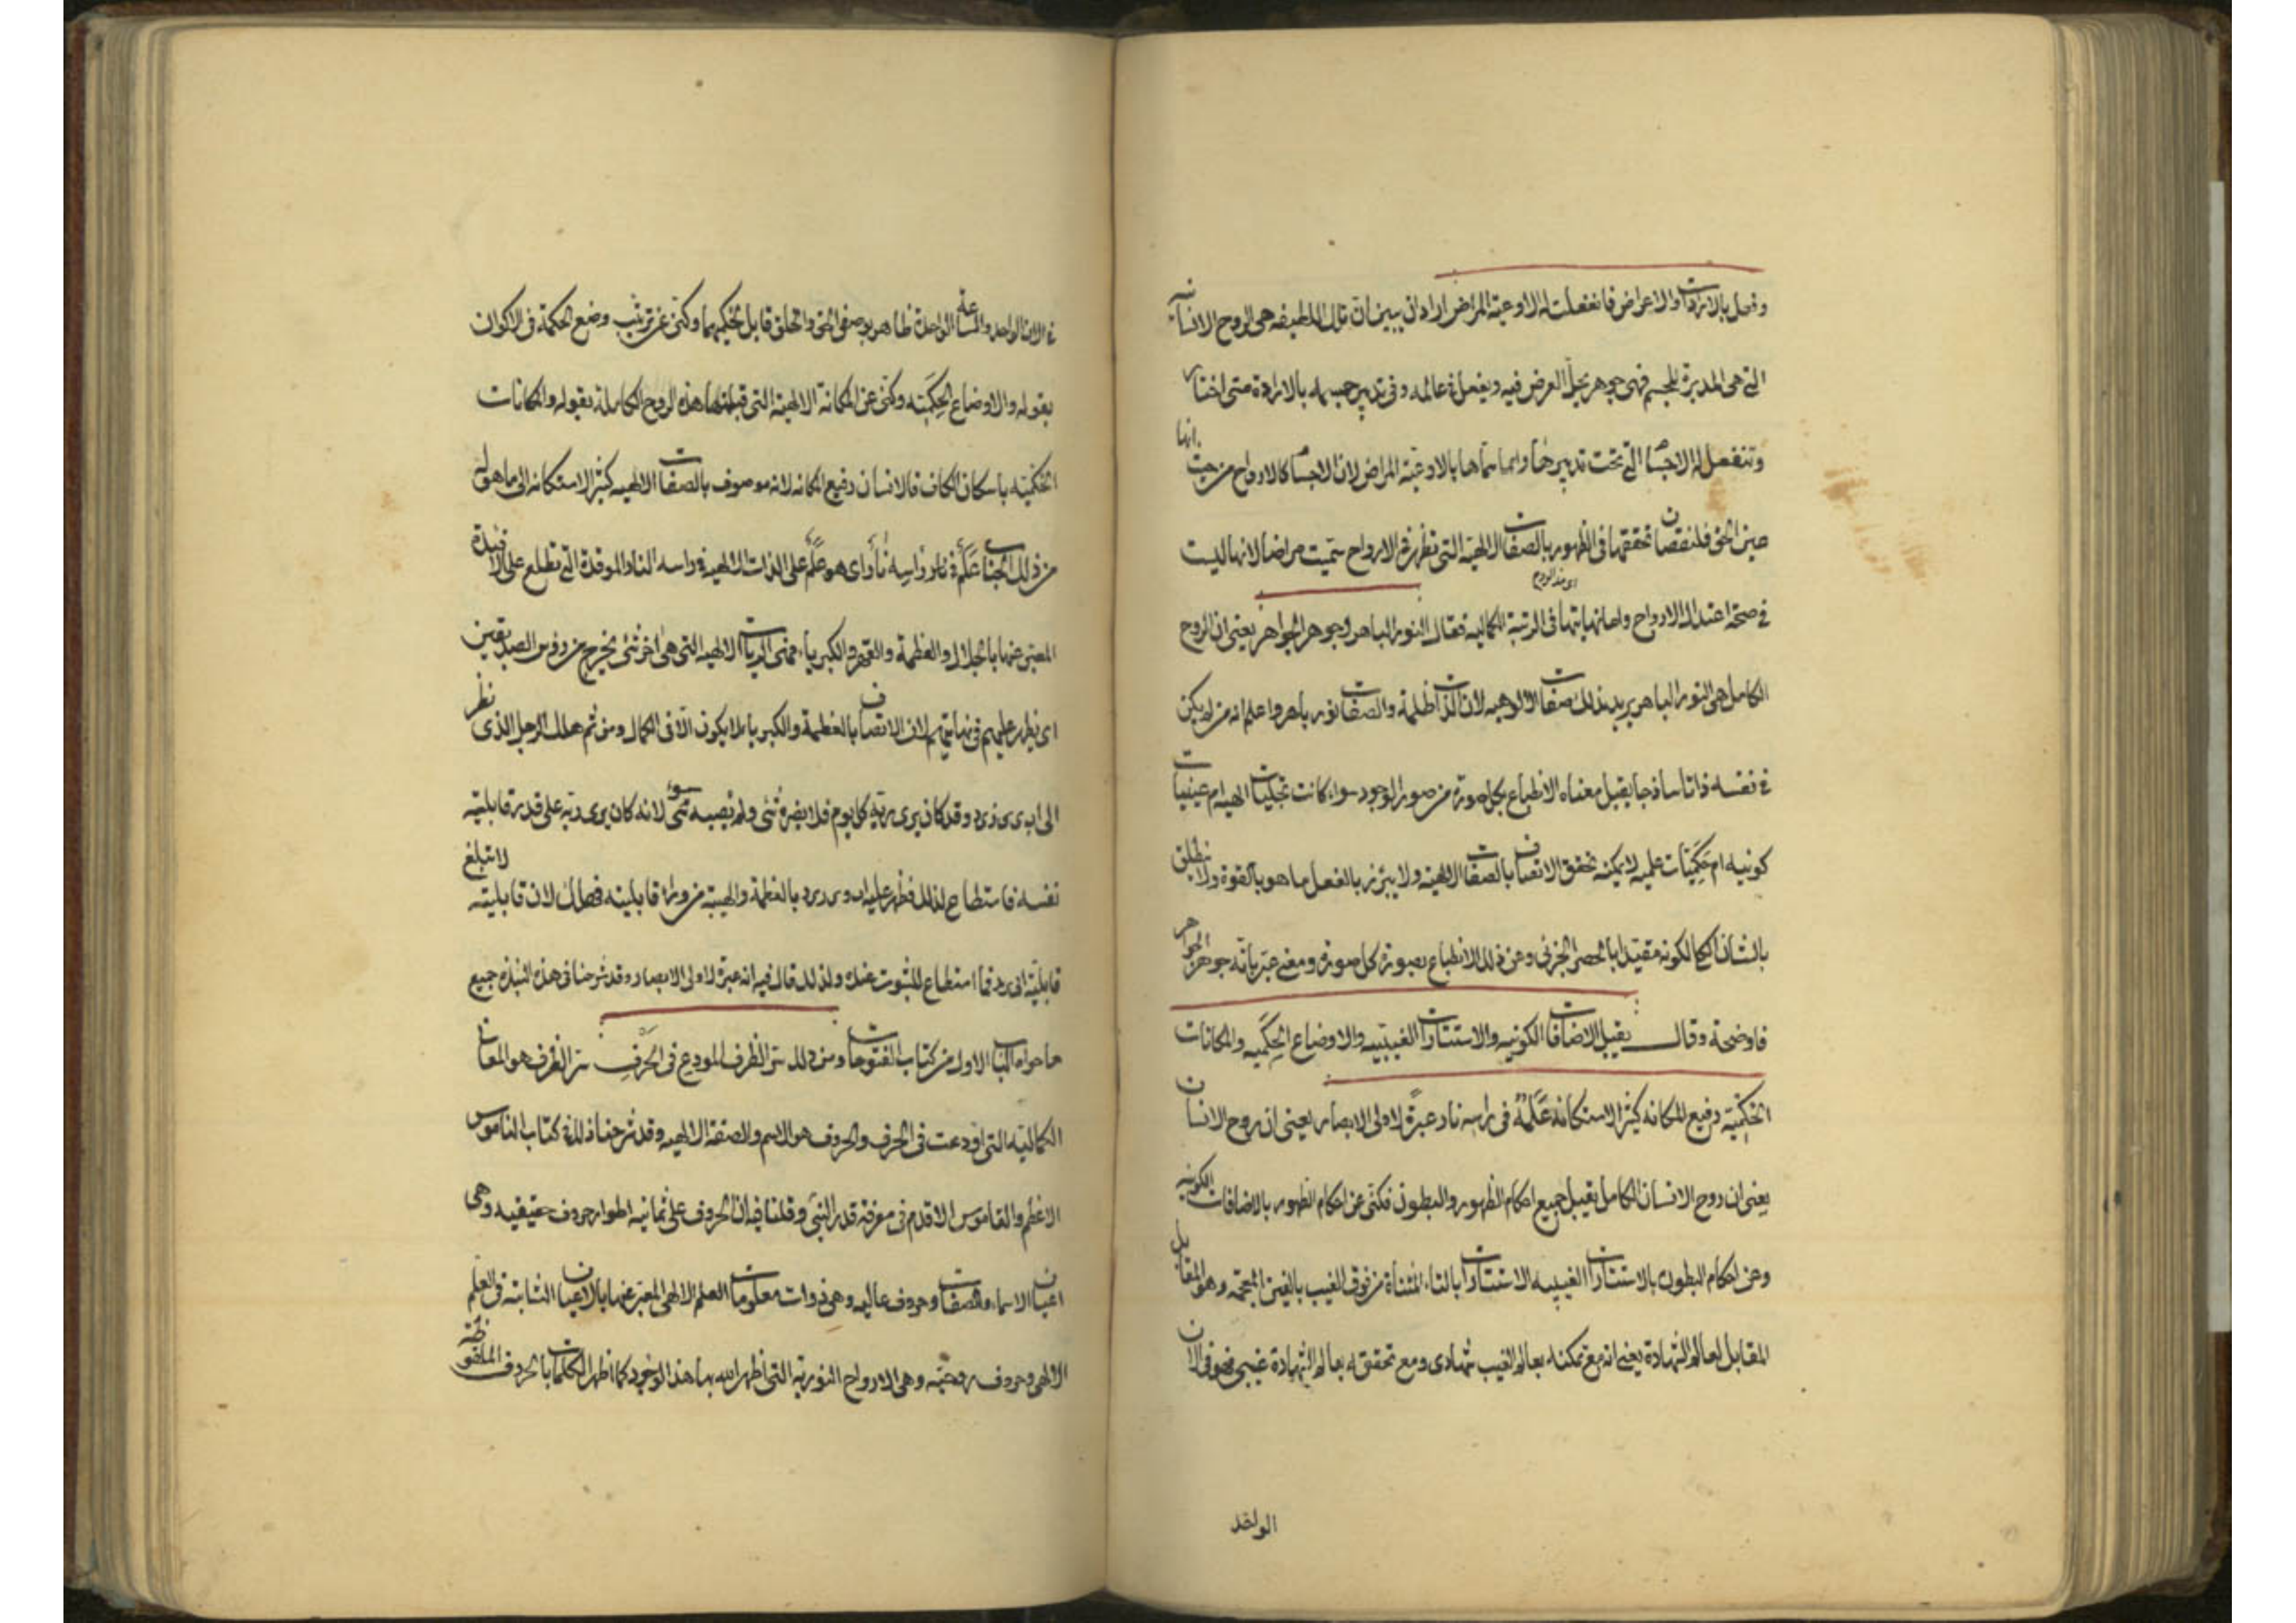 وتعمل بالارادات والاعراض فانفعلت له الاوعية المراض اراد ان يبين ان تلك اللطيفه هى الروح الانسانيه
التى هى المدبرة للجسم فهى جوهر يحل العرض فيه ويفعل فى عالمه وفى تدبير جسمه بالارادة متى اختار
وتنفعل له الاجسام التى تحت تدبيرها وانما سماها بالاوعية المراض لان الاجسام كالارواح من حيث انها
عين الحق فلنقصان تحققها فى الظهور بالصفات الالهية التى تظهر فى الارواح سميت مراضا لانها ليست
فى صحة اعتدال الارواح واما نهايتها فى الرتبة الكماليه فقال النور الباهر وجوهر الجواهر يعنى ان الروح
اى هذه الروح
الكامل هى النور الباهر يريد بذلك صفات الالوهيه لان الذات ظلمة والصفات نور باهر واعلم انه من لم يكن
فى نفسه ذاتا ساذجا يقبل معناه الانطباع بكل صورة من صور الوجود سواء كانت تجليات الهيه ام عينيات
كونيه ام حكميات علميه لا يمكنه تحقق الاتصاف بالصفات الالهية ولا يبرز بالفعل ما هو بالقوة ولا ينطلق
بالشان الكلى لكونه مقيدا بالحصر الجزئى وعن ذلك الانطباع بصورة كل صورة ومعنى عبر بانه جوهر الجواهر
فاوضحة وقال يقبل الاضافات الكونيه والاستتارات الغيبيه والاوضاع الحكميه والمكانات
الحكميّة رفيع المكانه كثير الاستكانه علمٌ فى راسه نار عبرة لاولى الابصار يعنى ان روح الانسان
يعنى ان روح الانسان الكامل يقبل جميع احكام الظهور والبطون فكنى عن احكام الظهور بالاضافات الكونيه
وعن احكام البطون بالاستتارات الغيبيه الاستتارات بالتاء المثناة من فوق الغيب بالغين المعجمه وهو المقابل
المقابل لعالم الشهادة يعنى انه مع تمكنه بعالم الغيب شهادى ومع تحققه بعالم الشهادة غيبى فهو فى الان
الواحد
فى الان الواحد والساعة الواحدة ظاهر بوصفى الحق والخلق قابل لحكميهما وكنى عن ترتيب وضع الحكمة فى الاكوان
بقوله والاوضاع الحكميّه وكنى عن المكانة الالهية التى قبلتها هذه الروح الكاملة بقوله والمكانات
الحكميّه باسكان الكاف فالانسان رفيع المكانه لانه موصوف بالصفات الالهيه كثير الاستكانه الى ما هو له
من ذلك الجناب علم فى راسه نار اى هو علم على الذات الالهيه فى راسه النار الموقدة التى تطلع على الافئدة
المعبر عنها بالجلال والعظمة والقهر والكبرياء فهى الالهيه التى هى اخر شئ يخرج من روس الصديقين
اى يظهر عليهم فى نهايتهم لان الاتصاف بالعظمة والكبرياء لا يكون الا فى الكمال ومن ثم هلك الرجل الذى نظر
الى ابى يزيد وقد كان يرى ربه كل يوم فلا يضره شئ ولم يصبه سوء لانه كان يرى ربه على قدر قابلية
نفسه فاستطاع لذلك فظهر عليه ابو يزيد بالعظمة والهيبة من وراء قابليته فهلك لان قابليته لا تبلغ
قابلية ابى يزيد فما استطاع للثبوت عنده ولذلك قال فيه انه عبرة لاولى الابصار وقد شرحنا فى هذه النبذه جميع
ما حواه الباب الاول من كتاب الفتوحات ومن ذلك سر الظرف المودع فى الحرف سر الظرف هو المعان
الكماليّه التى اودعت فى الحرف والحروف هو الاسم والصفة الالهيه وقد شرحنا ذلك فى كتاب الناموس
الاعظم والقاموس الاقدم فى معرفة قدر النبى وقلنا فيه ان الحروف على ثمانيه اطوار حروف حقيقيه وهى
اعيان الاسماء والصفات وحروف عاليه وهى ذوات معلومات العلم الالهى المعبر عنها بالاعيان الثابته فى العلم
الالهى وحروف روحيّه وهى الارواح النورية التى اظهر الله بها هذا الوجود كما اظهر الكلمات بالحروف الملفوظه